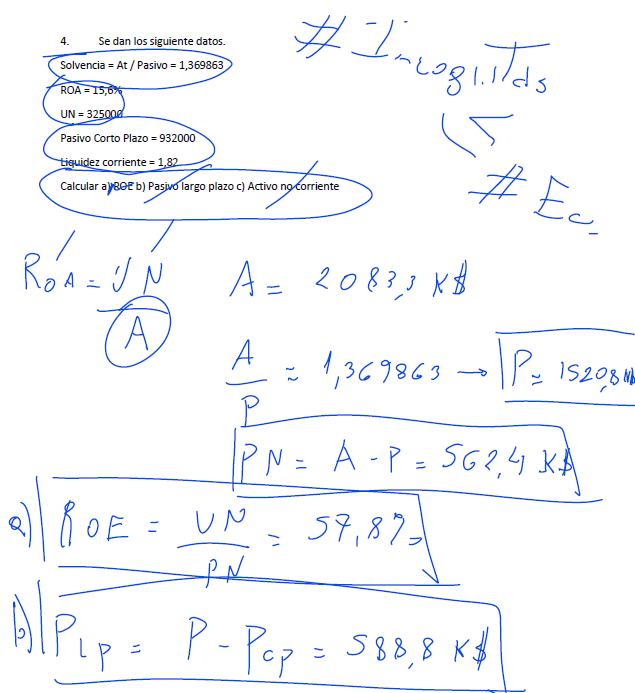 4. Se dan los siguiente datos.
Solvencia = At / Pasivo = 1,369863
ROA = 15,6%
UN = 325000
Pasivo Corto Plazo = 932000
Liquidez corriente = 1,82
Calcular a) ROE b) Pasivo largo plazo c) Activo no corriente
# Incognitas
# Ec
ROA = UN / A
A = 2083,3 K$
A / P = 1,369863 → P = 1520,8
PN = A - P = 562,4 K$
a) ROE = UN / PN = 57,8%
b) PLP = P - PCP = 588,8 K$